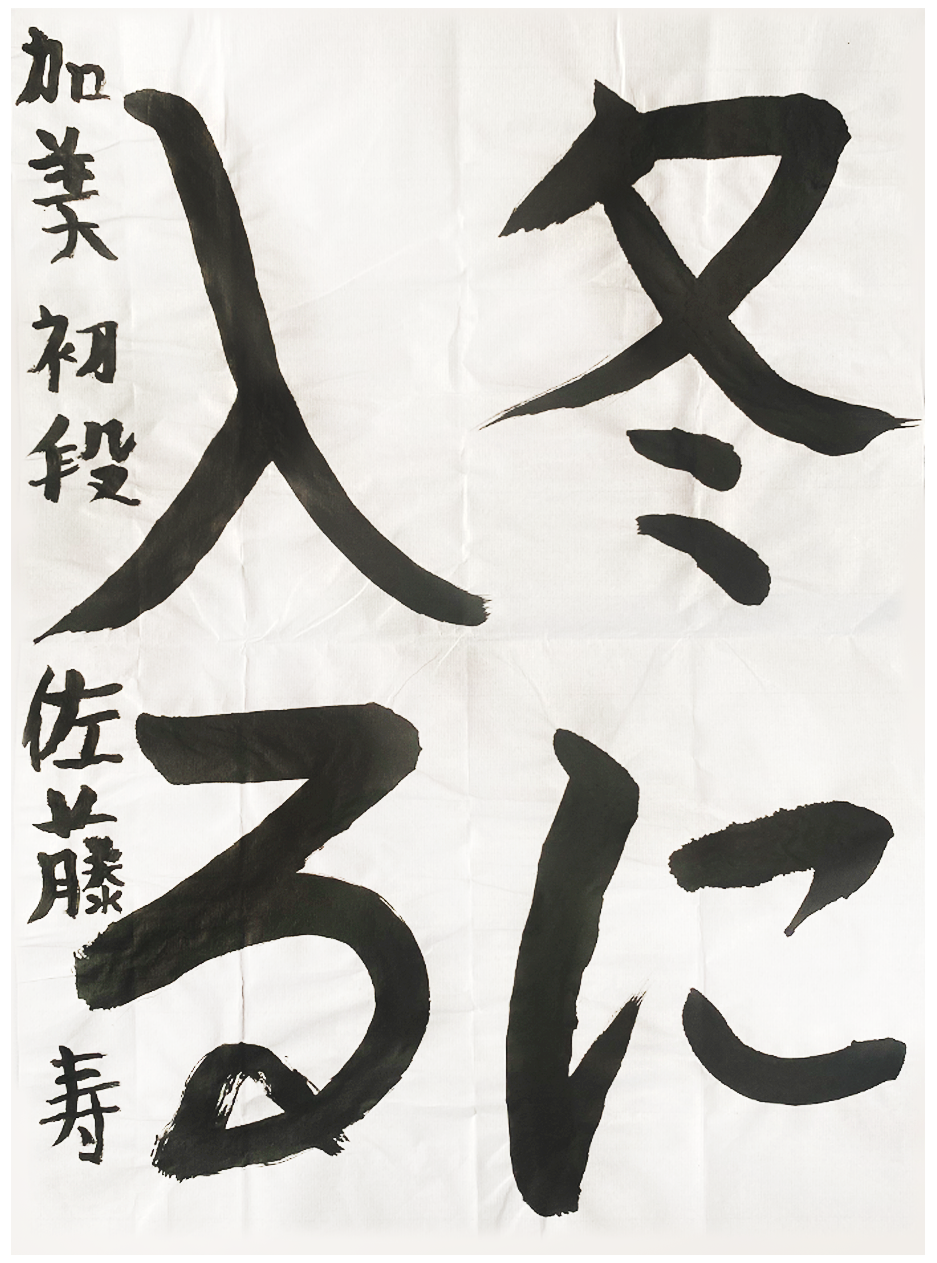 冬に
入る
加美 初段 佐藤 寿